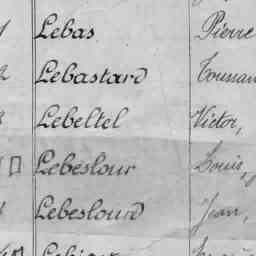 Lebas Pierre
Lebastard
Lebeltel Victor,
Lebeslour Louis,
Lebeslourd Jean,